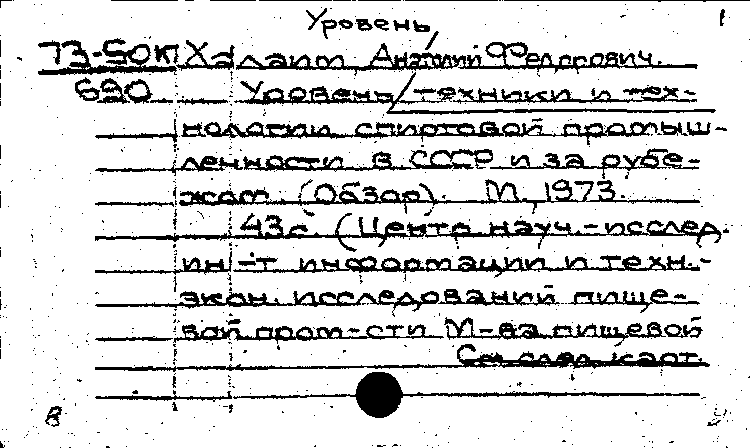 Уровень
1
73-50К Халаим Анатолий Федорович.
690 Уровень техники и тех-
нологии спиртовой промыш-
ленности в СССР и за рубе-
жом. (Обзор). М., 1973.
43с. (Центр науч.-исслед.
ин-т информации и техн.-
экон. исследований пище-
вой пром-сти М-ва пищевой
См. след. карт.
в